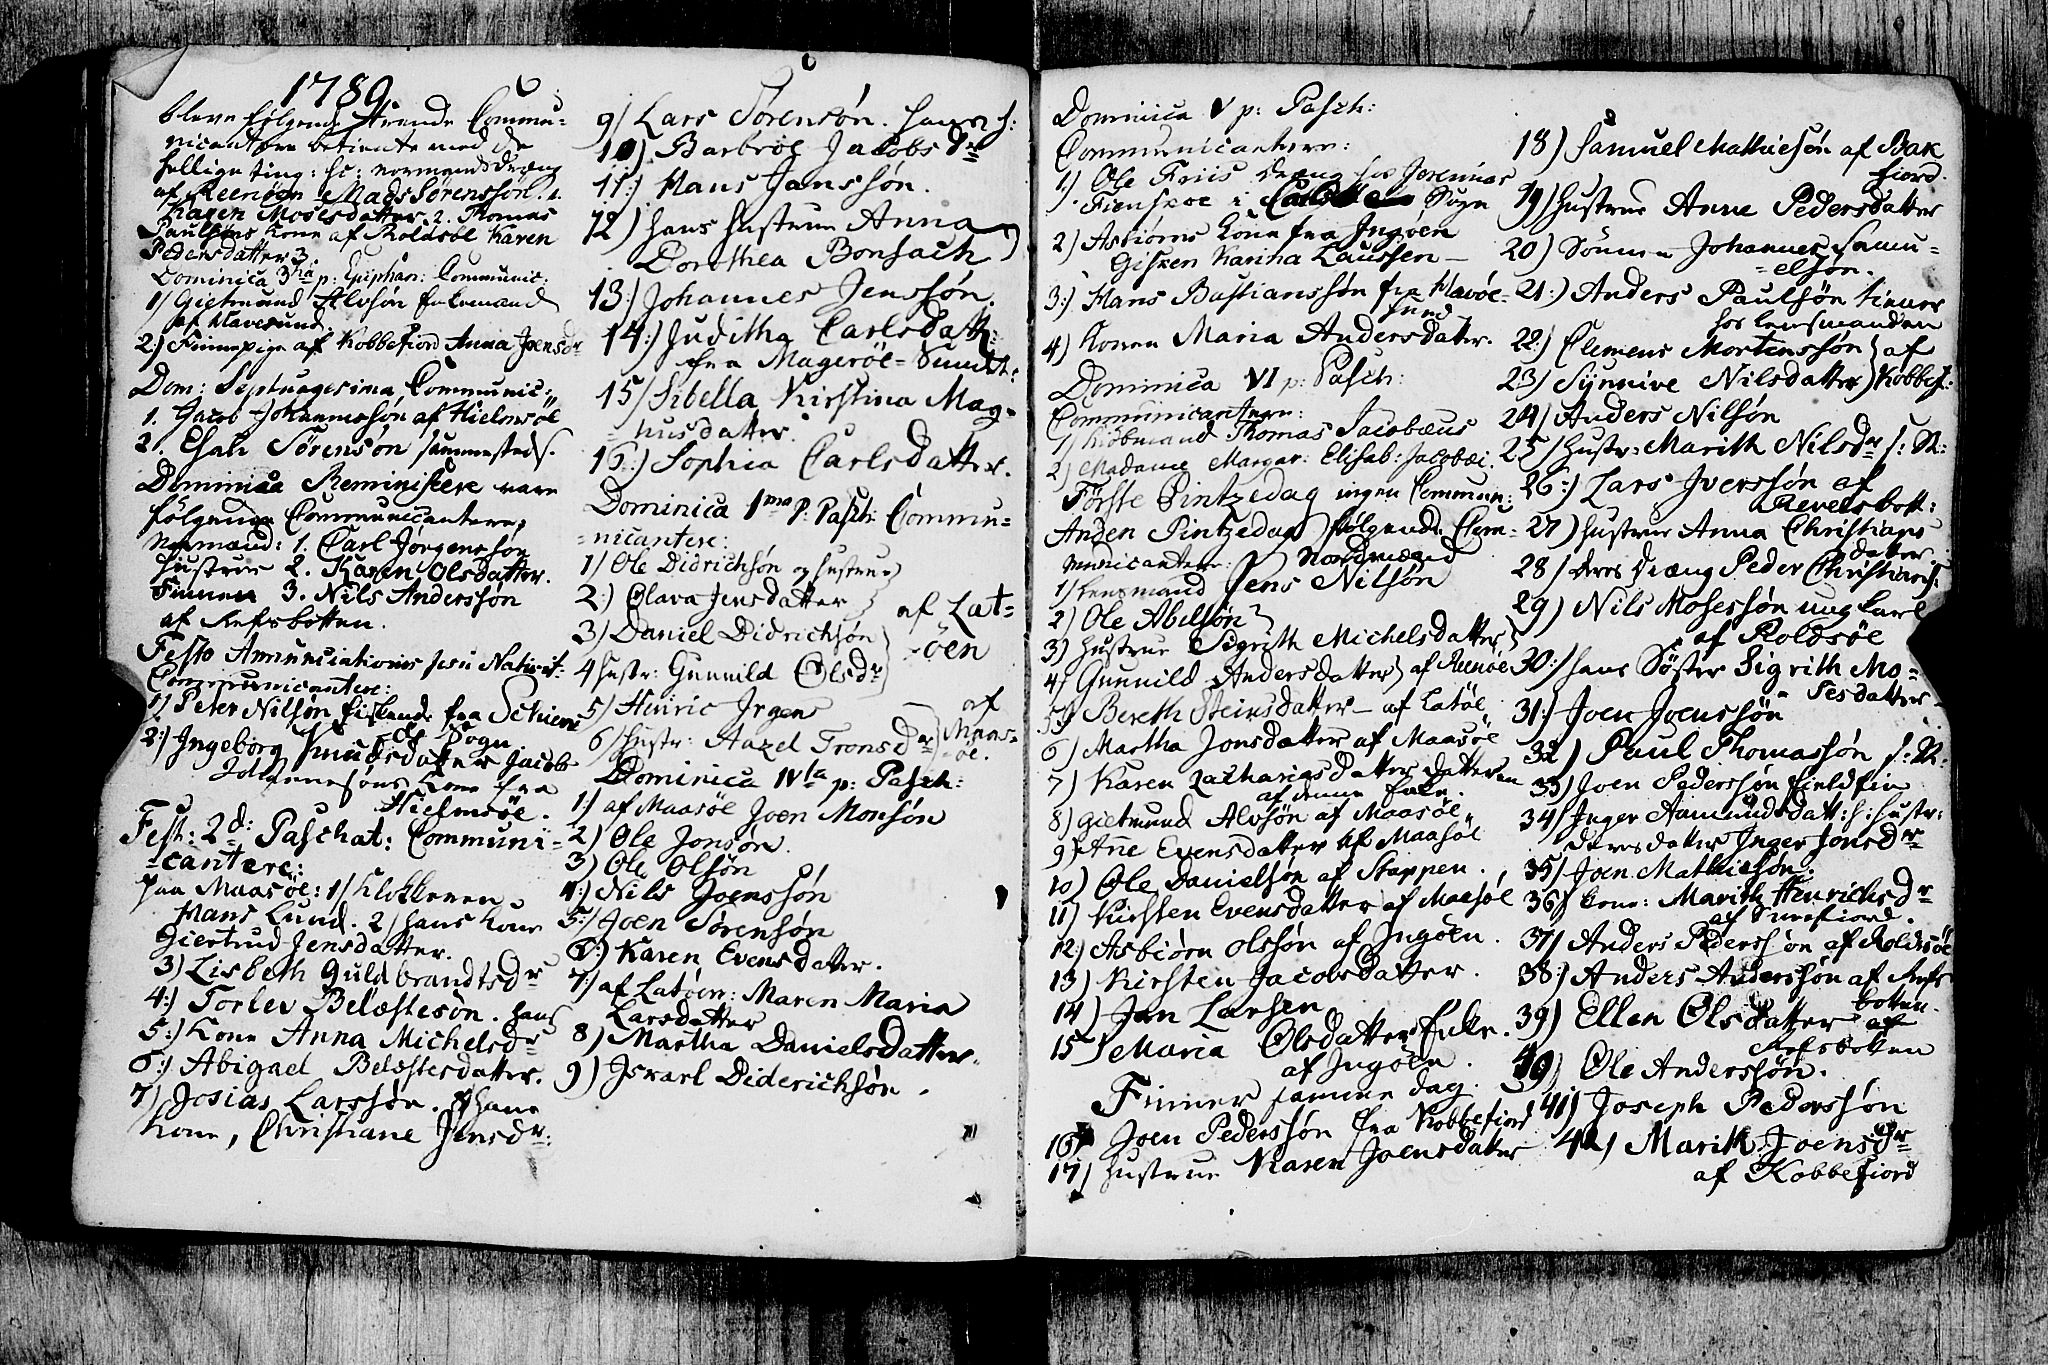 1789
bleve følgende Commu-
nicantere betiente med de
hellige ting: sc: normands dræng
af Reenøen Mads Sørenssøn. 1.
Karen Mosesdatter. 2. Thomas
Paulsøns kone af Roldsøe Karen
Pedersdatter 3.
Dominica 3tia p: Epiphan: Communic:
1/ Gietmund Alvsøn Enkemand
af Havesund.
2) Finnepige af Kobbefiord Anna Joensdr
Dom: Septuagesima Communic:
1. Jacob Johannessøn af Hielmsøe
2. Esaie Sørensøn sammesteds.
Dominica Reminiscere vare
følgende Communicantere,
Normænd: 1. Carl Jørgenssøn
Hustrue 2. Karen Olsdatter.
Finnen 3. Nils Anderssøn
af Refsbotten.
Festo Annunciationis
Communicantere:
1) Peter Nilsøn fra
Sogn
2) Ingeborg Knudsdatter Jacob
Johannesøns Kone fra
Hielmsøe.
Fest: 2d: Paschat: Communi-
-cantere:
paa Maasøe: 1/ Klokkeren
Hans Lund. 2) hans Kone
Giertrud Jensdatter.
3) Lisbeth Guldbrandtsdr
4:) Torlev Belæstesøn. hans
5:) Kone Anna Michelsdr
6:) Abigael Belæstesdatter.
7) Josias Larssøn. 8 hans
Kone, Christiane Jensdr:
9) Lars Sørensøn.
10) Barbroe Jacobsdr
11:) Hans Janssøn.
12) hans hustrue Anna
Dorothea Bonsach
13:) Johannes Jenssøn.
14:) Juditha Carlsdatt:
fra Magerøe-Sundet:
15/ Sibella Kirstina Mag-
-nusdatter.
16:) Sophia Carlsdatter.
Dominica 1ma p: Pasch: Commu-
-nicantere:
1/ Ole Didrichsøn og hustrue
2:) Olava Jensdatter
3) Daniel Didrichsøn
af Lat-
-øen
4 hustr: Gunnild Olsdr
5) Hinric Jrgens
af
6) Hustr: Tronsdr
Maas-
øe.
Dominica IVta p: Pasch:
1:) af Maasøe Joen Monsøn
2) Ole Jonsøn.
3) Ole Olsøn
4:) Nils Joenssøn
5:) Joen Sørensøn
6:) Karen Evensdatter.
7:) af Latøen: Maren Maria
Larsdatter
8) Martha Danielsdatter.
9) Israel Diderichsøn.
Dominica V p: Pasch:
Communicantere:
1) Ole Friis dræng hos
i Sogn
2) Asbiørns kone fra Ingøen
Gisken Karina Laussen
3:) Hans Bastianssøn fra Havøe-
sund
4) Konen Maria Andersdatter.
Dominica VI p: Pasch:
Communicantere:
1) Kiøbmand Thomas Jacobæus
2) Madame Margar: Elisab: Jacobæi.
Første Pintzedag ingen Commun:
Anden Pintzedag følgende Com-
municantere: Nordmænd
1/ Lensmand Jens Nilsøn
2) Ole Abelsøn
3) Hustrue Sigrith Michelsdatter
4) Gunnild Andersdatter af Reenøe
5:) Bereth Steinsdatter – af Latøe
6) Martha Jonsdatter af Maasøe
7) Karen Zachariasdatter datteren
af denne Enke.
8) Gietmund Alvsøn af Maasøe
9) Añe Evensdatter af Maasøe
10) Ole Danielsøn af Stappen.
11) Kirsten Evensdatter af Maasøe
12:) Asbiørn Olssøn af Ingøen.
13) Kirsten Jacobsdatter.
14) Jan Larsen
15) Maria Olsdatter Enke.
af Ingøen.
Finner samme dag.
16) Joen Pederssøn fra Kobbefiord
17) Hustrue Karen Joensdatter
18) Samuel Mathiesøn af Bak
fiord.
19) Hustrue Anne Pedersdatter
20) Sønnen Johannes Samu-
-elsøn.
21:) Anders Paulsøn tiener
hos lensmanden
22:) Clemens Mortenssøn af
23) Synnive Nilsdatter Kobbef:
24) Anders Nilsøn
25) Hustr: Marith Nilsdr s: St:
26:) Lars Iverssøn af
Reversbott:
27) Hustrue Anna Christians
datter
28) deres dræng Peder Christians:
29) Nils Mosessøn ung karl
af Roldsøe
30:) hans Søster Sigrith Mo-
-sesdatter
31:) Joen Joenssøn
32) Paul Thomassøn s: St:
33) Joen Pederssøn fieldfin
34) Inger Aamundsdatt: h: hustr:
deres datter Inger Jonsdr
35) Joen Mathiesøn.
36) kone: Marith Henrichsdr
af
37) Anders Pederssøn af Roldsøe
38:) Anders Anderssøn af Refs
botten.
39) Ellen Olsdatter af
Refsbotten
40) Ole Anderssøn.
41) Joseph Pederssøn
42) Marith Joensdr
af Kobbefiord